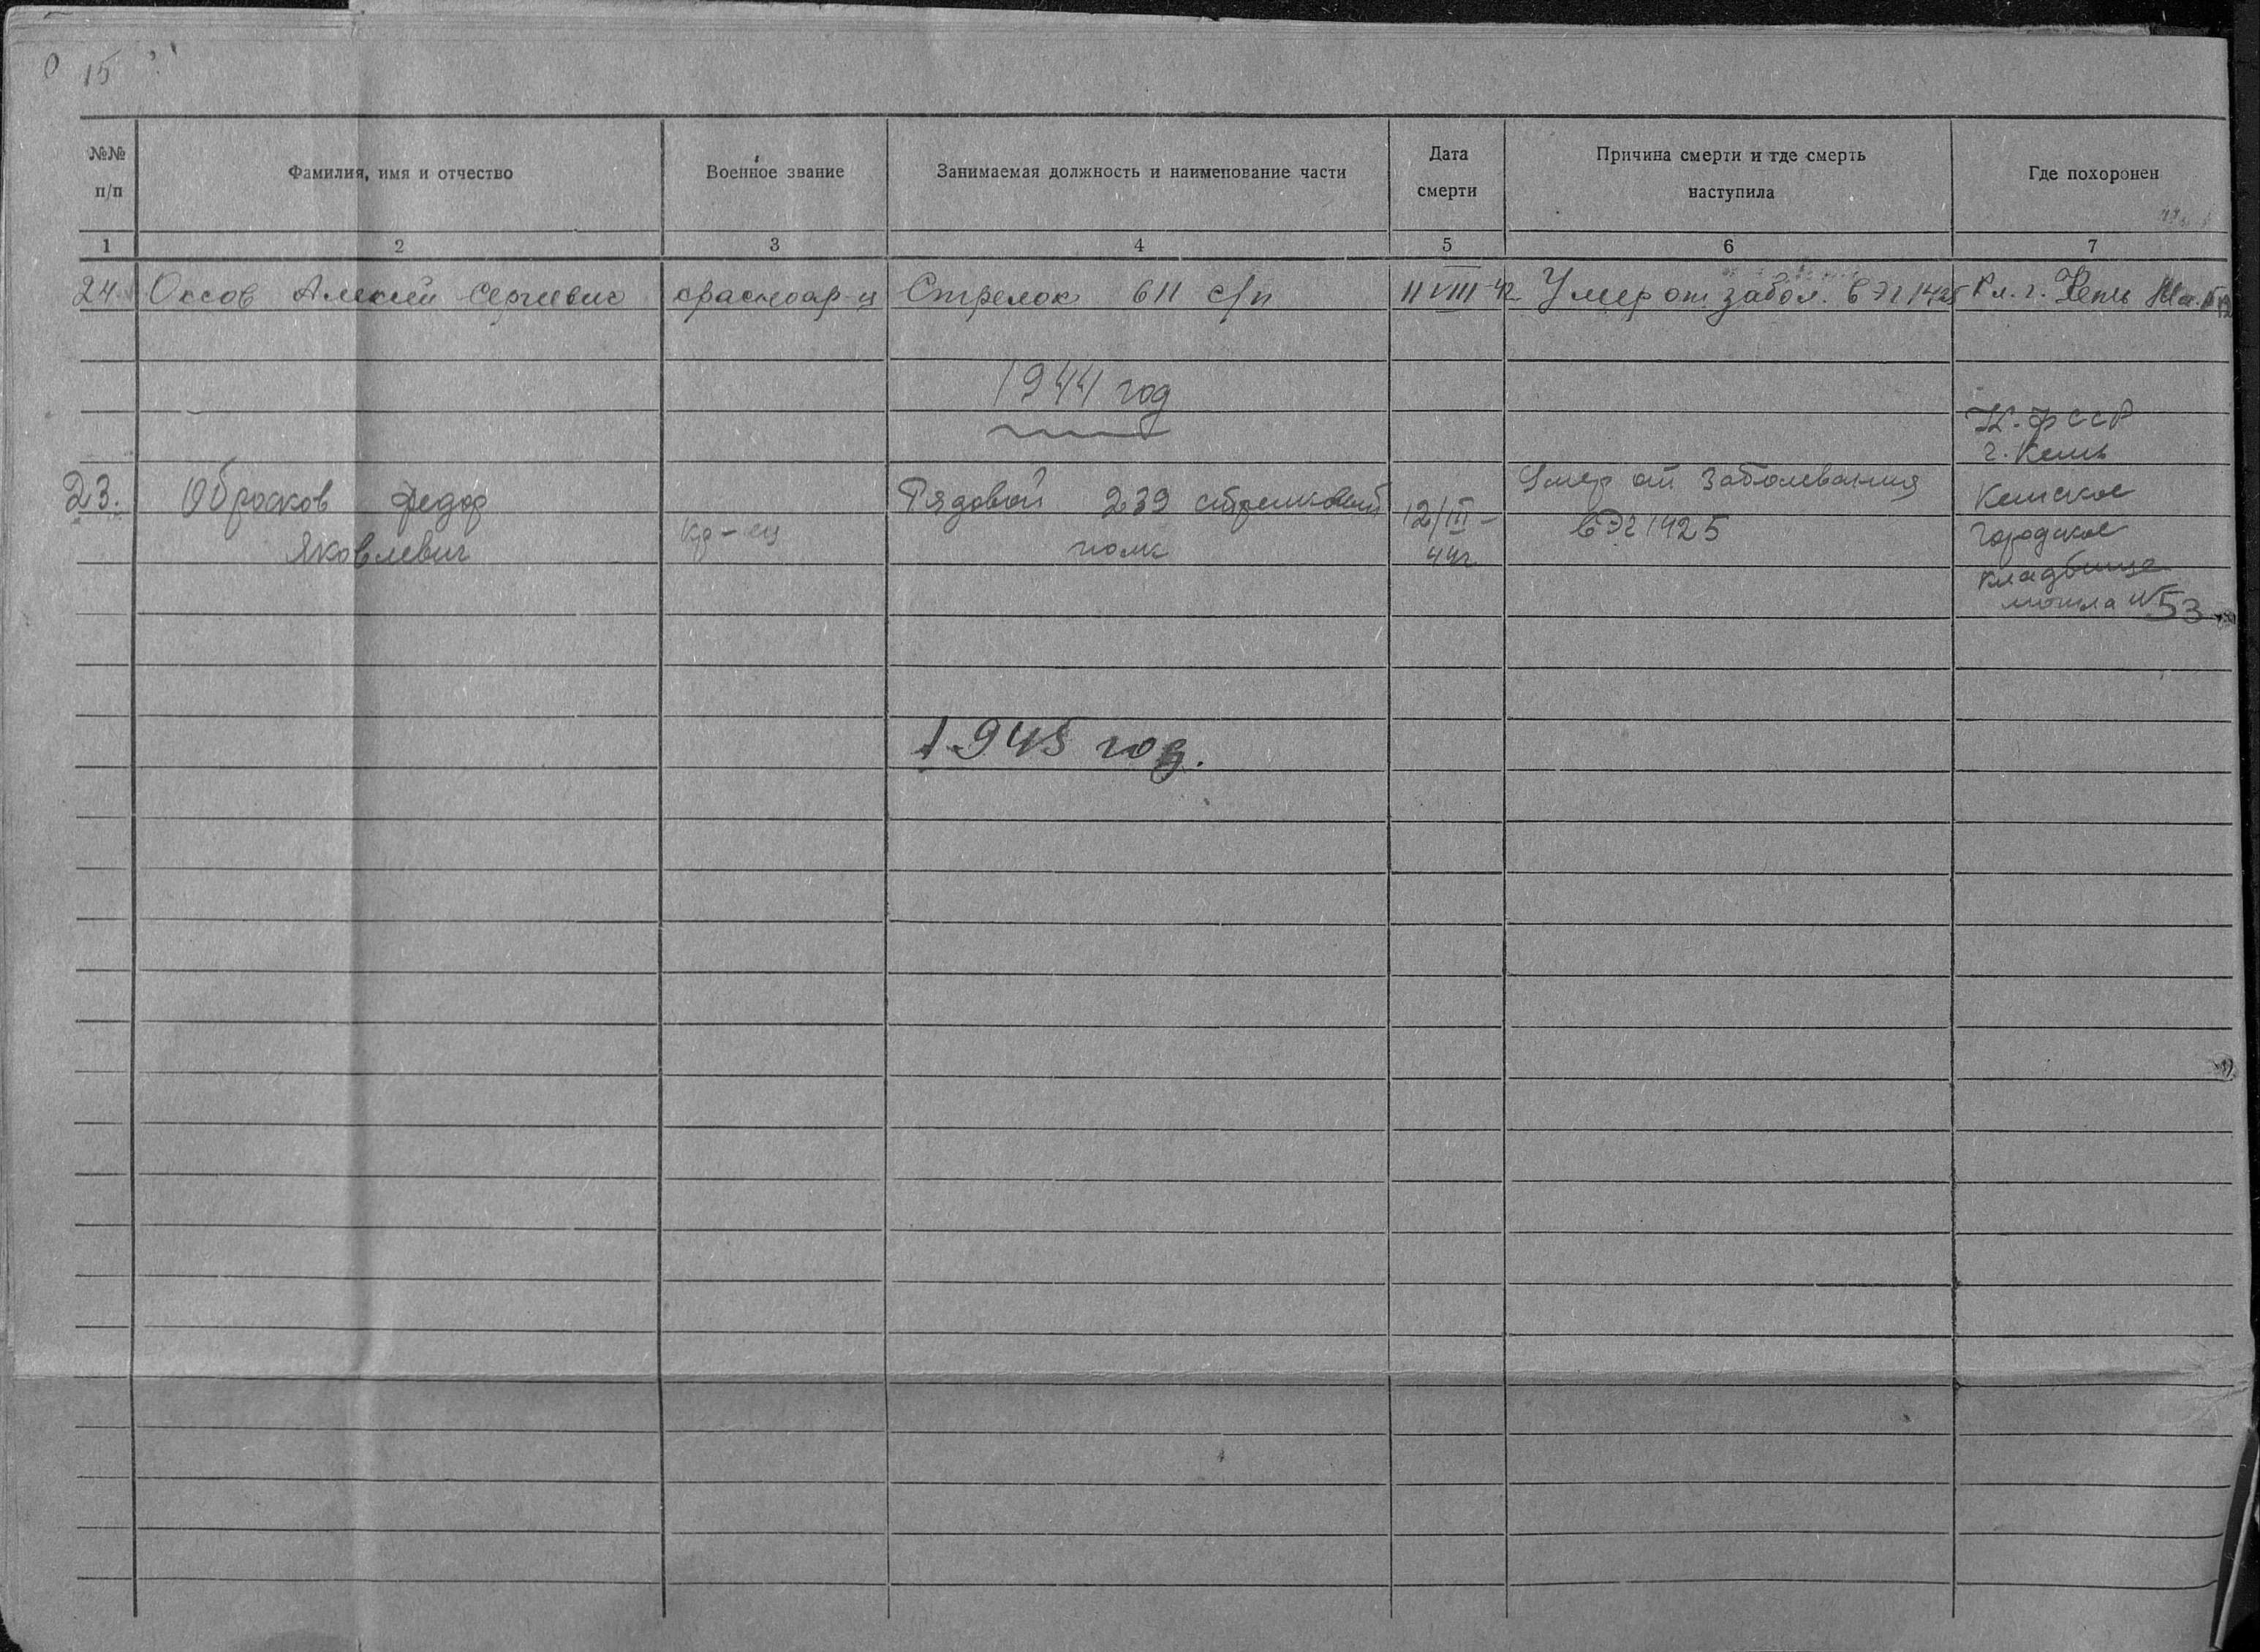 О 15
№№ п/п
Фамилия, имя и отчество
Военное звание
Занимаемая должность и наименование части
Дата смерти
Причина смерти и где смерть наступила
Где похоронен
1 2 3 4 5 6 7
24 Оссов Алексей Сергеевич красноар-ц Стрелок 611 с/п 11 VIII 42 Умер от забол. в ЭГ 1425 Кл. г. Кемь
1944 год
К.ФССР
г. Кемь
23. Обросков Федор Рядовой 239 стрелковый 12/III- Умер от заболевания Кемское
Яковлевич кр-ец полк 44г в ЭГ 1425 городское
кладбище
могила №53
1945 год.